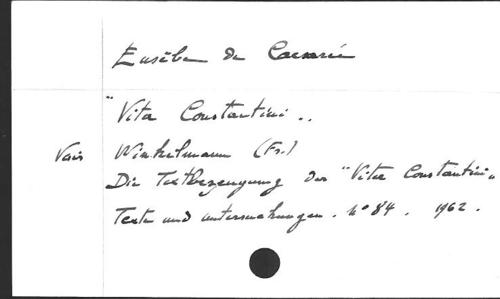 Eusèbe de Caesarée
"Vita Constantini"
Voir Winkelmann (Fr.)
Die Textbezeugung der "Vita Constantini"
Texte und Untersuchungen. N° 84. 1962.